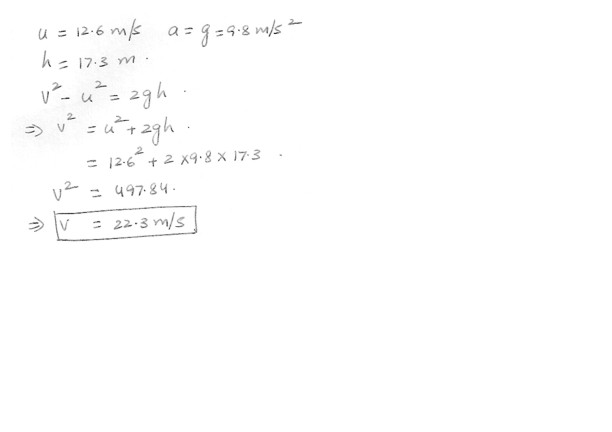 u = 12.6 m/s   a = g = 9.8 m/s²
h = 17.3 m.
v² - u² = 2gh.
⇒ v² = u² + 2gh.
= 12.6² + 2 × 9.8 × 17.3.
v² = 497.84.
⇒ v = 22.3 m/s